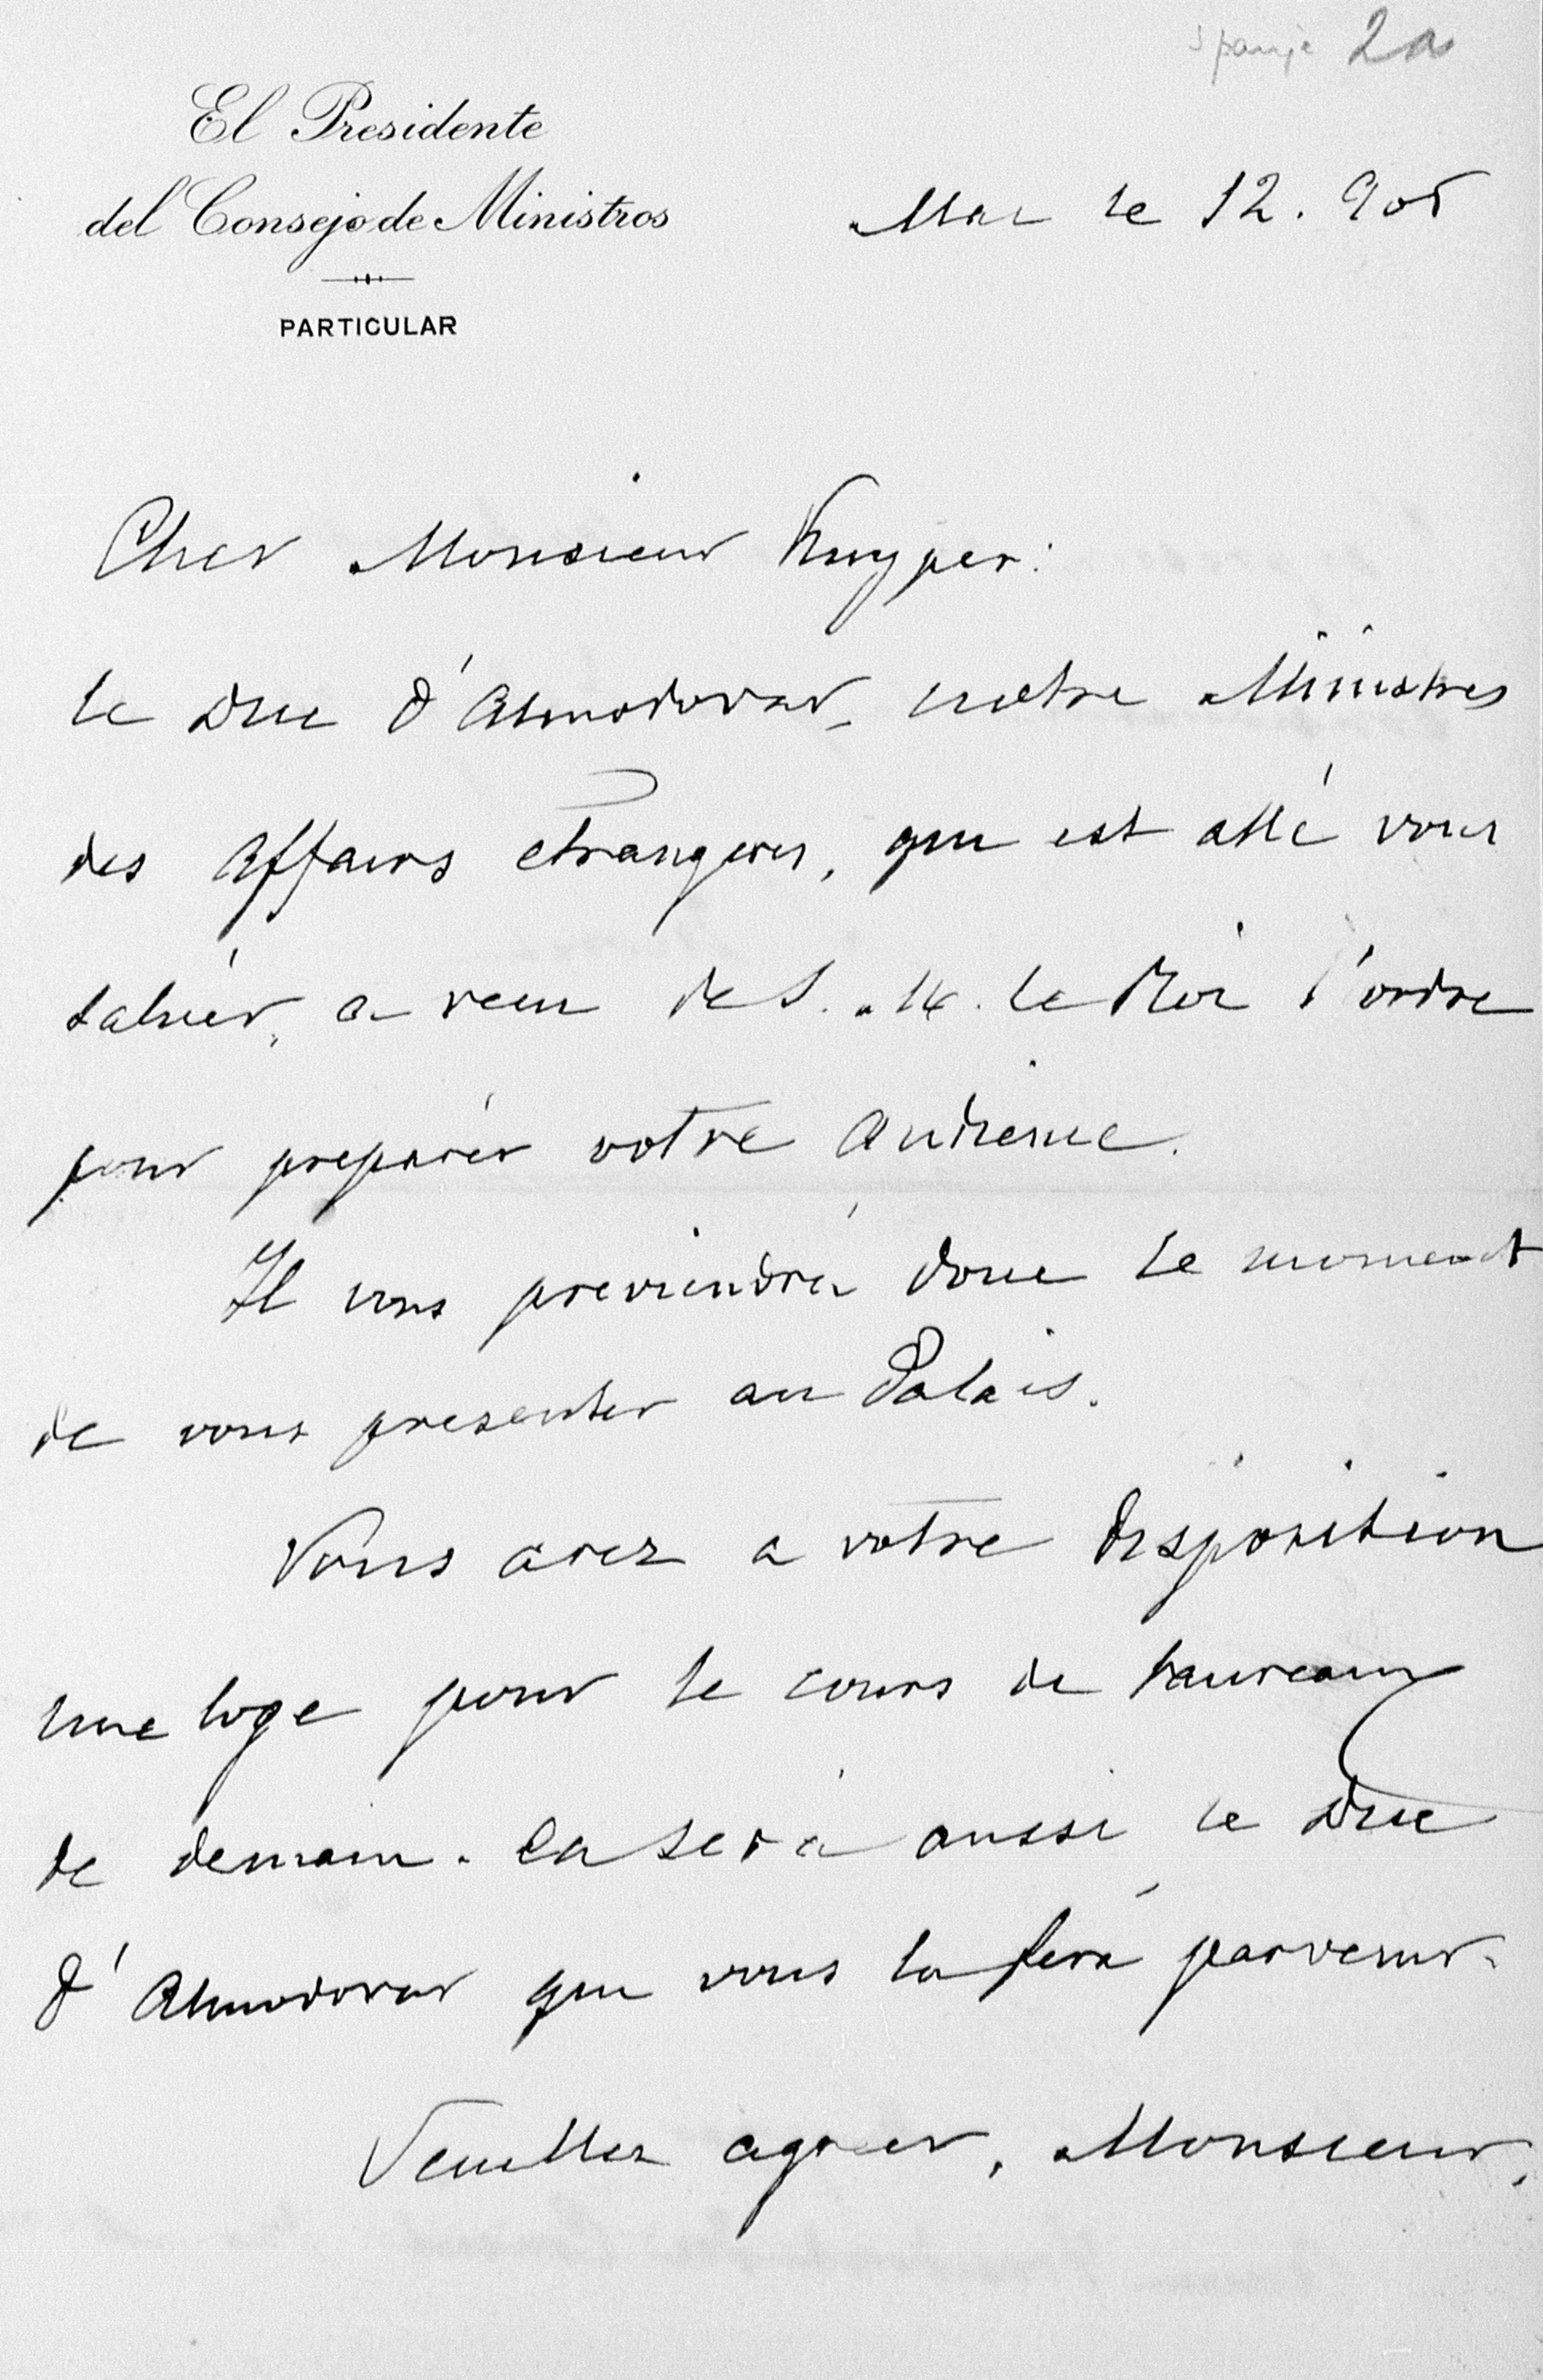 Spanje 2a
El Presidente
del Consejo de Ministros
PARTICULAR
le 12. 905
Cher Monsieur Kuyper:
le Duc d'Almodovar, notre Ministres
des Affairs etrangers, qui est allé vous
saluér, a reçu de S. M. le Roi l'ordre
pour preparér votre audience.
Il vous previendrá donc le moment
de vous presenter au Palais.
Vous avez a votre disposition
une loge pour le cours de taureaux
de demain. Ca será aussi le Duc
d'Almodovar qui vous la ferá parvenir.
Veuillez agreer, Monsieur,